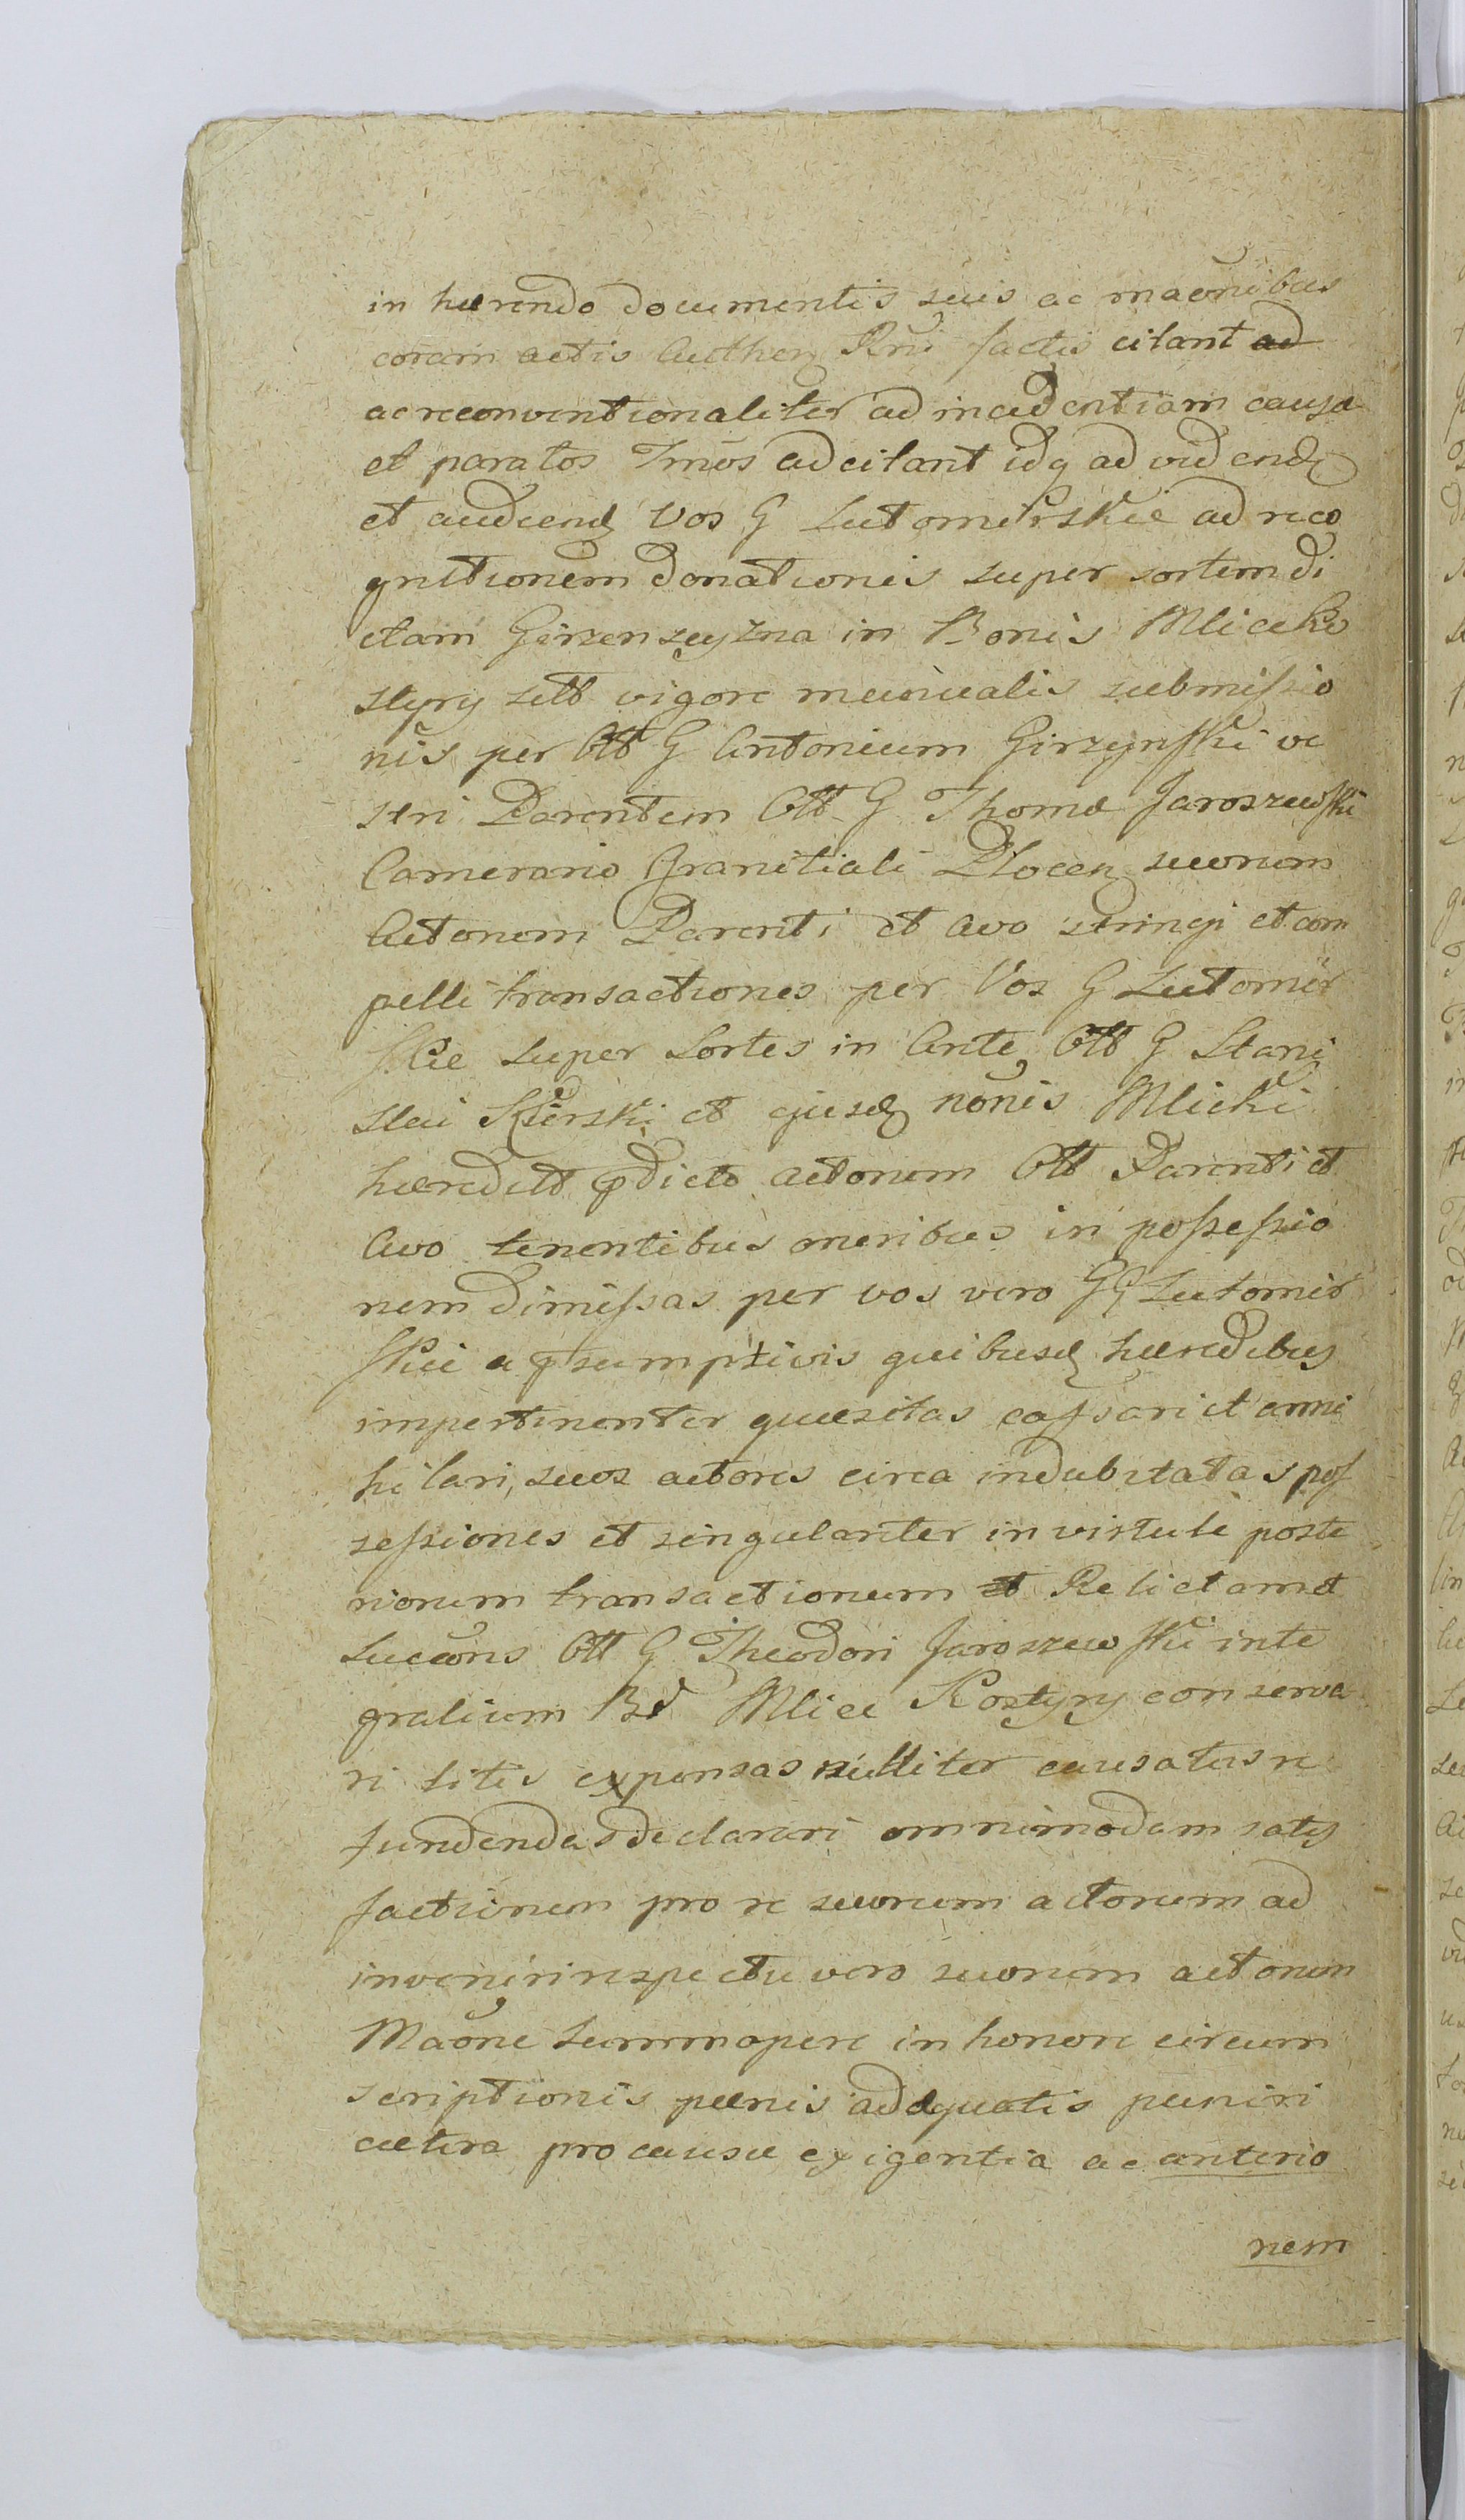 in hærendo documentis suis ac maōnibus
coram actis Authen Rni factis citant ad
ac reconventionaliter ad incidentiam causæ
et paratos Tmōs adcitant idq ad videnđ
et audienđ Vos G Lutomirskie ad reco
gnitionem donationis super sortem di
ctam Girzenszyzna in Bonis Mlice Ko
styry sttt vigore manualis submissio
nis per Ott G Antonium Girzynski ve
stri Parentem Ott G Thomæ Jaroszewski
Camerario Granitiali Plocen suorum
Actorum Parenti et Avo stringi et com
pelli transactiones per Vos G Lutomir
skie super Sortes in Ante Ott G Stani
slai Kierski et ejusđ nōnis Mlicki
hæreditt pdicto actorum Ott Parenti et
Avo tenentibus oneribus in possessio
nem dimissas per vos vero GG Lutomir
skie a psumptivis quibusđ hæredibus
impertinenter quæsitas cassari et anni
hilari, suos actores circa indubitatas pos
sessiones et singulariter in virtute poste
riorum transactionum et Relictam et
Succōns Ott G Theodori Jaroszewski inte
gralium Bd Mlice Kostyry conserva
ri litis expensas nulliter causatas re
fundendas declarari omnimodam satis
factionem pro re suorum actorum ad
inveniri respectu vero suorum actorum
Maōne summopere in honore circum
scriptionis pænis adæquatis puniri
cætera pro causæ exigentia ac anterio
rem